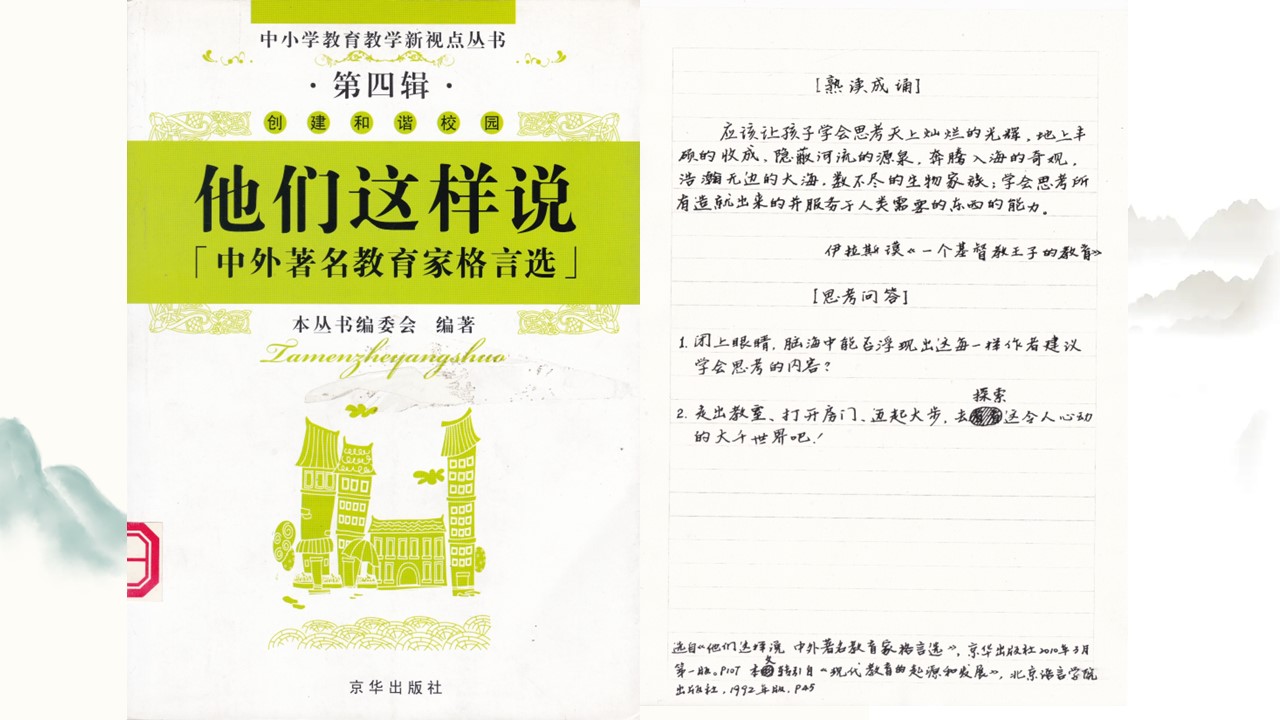 中小学教育教学新视点丛书
·第四辑·
创建和谐校园
他们这样说
「中外著名教育家格言选」
本丛书编委会 编著
Tamenzheyangshuo
京华出版社
[熟读成诵]
应该让孩子学会思考天上灿烂的光辉,地上丰
硕的收成、隐蔽河流的源泉,奔腾入海的奇观,
浩瀚无边的大海,数不尽的生物家族;学会思考所
有造就出来的并服务于人类需要的东西的能力。
伊拉斯谟《一个基督教王子的教育》
[思考问答]
1. 闭上眼睛,脑海中能否浮现出这每一样作者建议
学会思考的内容?
探索
2. 走出教室、打开房门、迈起大步,去这令人心动
的大千世界吧!
选自《他们这样说 中外著名教育家格言选》,京华出版社2010年3月
第一版。P107 本文转引自《现代教育的起源和发展》,北京语言学院
出版社,1992年版,P45